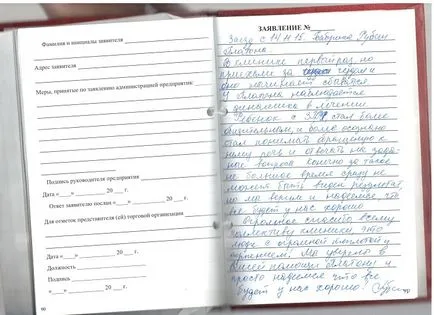 Фамилия и инициалы заявителя
Адрес заявителя
Меры, принятые по заявлению администрацией предприятия:
Подпись руководителя предприятия
Дата «____» ______ 20 ___ г.
Ответ заявителю послан «____» ______ 20 ___ г.
Для отметок представителя (ей) торговой организации
Дата «____» ______ 20 ___ г.
Должность
Подпись
«____» ______ 20 ___ г.
60
ЗАЯВЛЕНИЕ №
Заезд с 14 15 Рубан
Платона.
В клинике первый раз, но
приехали за чудом и
оно начинает сбываться
У Платона наблюдается
динамика в лечении
Ребенок с ЗПРР стал более
общительным, и более осознано
стал понимать обращенную к
нему речь и отвечать на задан-
ные вопросы конечно за такое
не большое время сразу не
может быть виден результат,
но мы верим и надеемся что
все будет у нас хорошо
Огромное спасибо всему
коллективу клиники, это
люди с огромной теплотой и
терпением. Мы уверены в
Вашей помощи Платону и
просто надеемся что все
будет у нас хорошо!